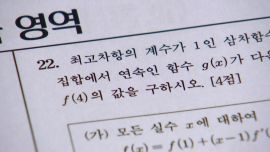 영역
22. 최고차항의 계수가 1인 삼차함수
집합에서 연속인 함수 g(x)가 다음
f(4)의 값을 구하시오. [4점]
(가) 모든 실수 x에 대하여
f(x) = f(1)+(x-1)f'(